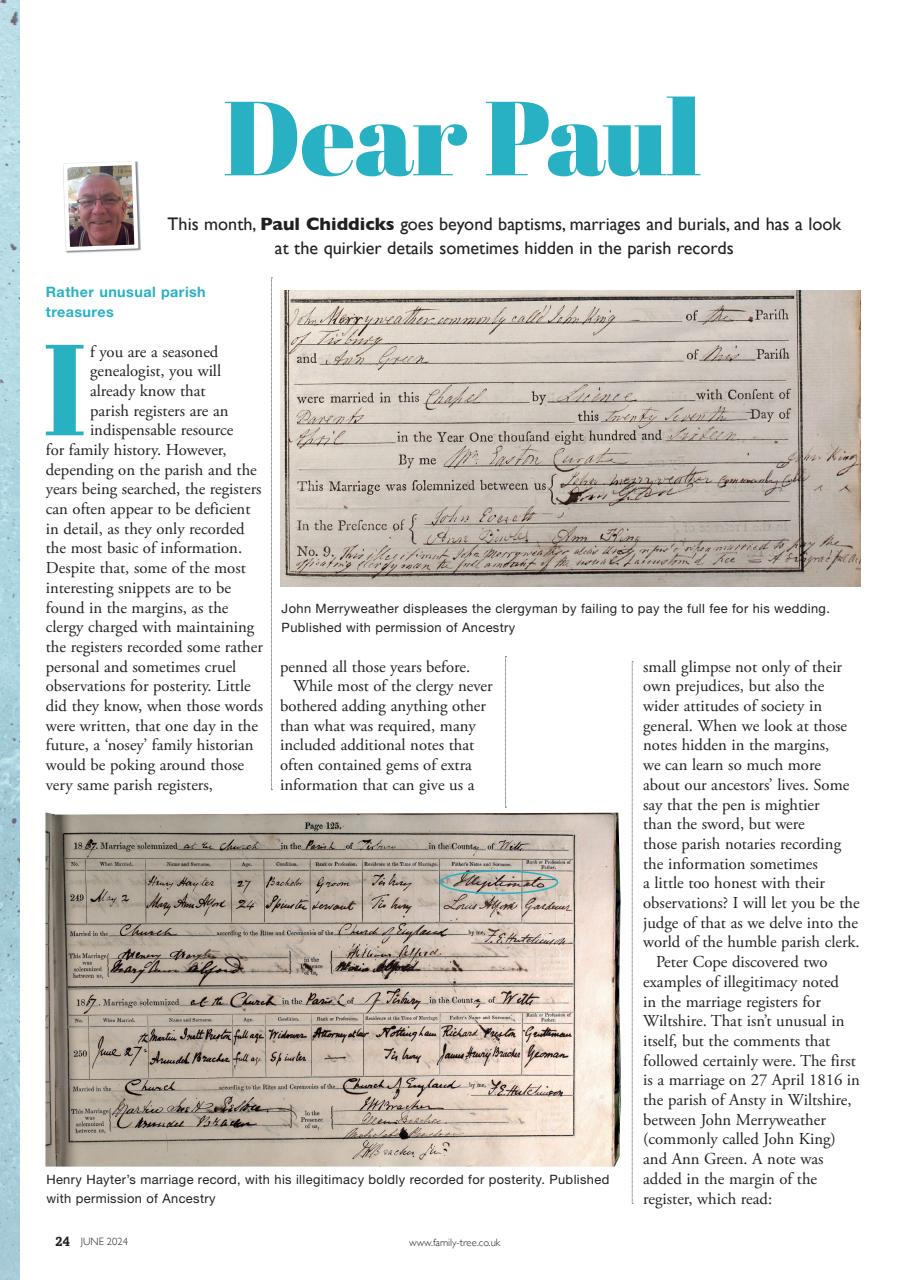 Dear Paul
This month, Paul Chiddicks goes beyond baptisms, marriages and burials, and has a look
at the quirkier details sometimes hidden in the parish records
Rather unusual parish
treasures
If you are a seasoned
genealogist, you will
already know that
parish registers are an
indispensable resource
for family history. However,
depending on the parish and the
years being searched, the registers
can often appear to be deficient
in detail, as they only recorded
the most basic of information.
Despite that, some of the most
interesting snippets are to be
found in the margins, as the
clergy charged with maintaining
the registers recorded some rather
personal and sometimes cruel
observations for posterity. Little
did they know, when those words
were written, that one day in the
future, a ‘nosey’ family historian
would be poking around those
very same parish registers,
John Merryweather commonly call'd John King of the Parish
of Tisbury
and Ann Green of this Parish
were married in this Chapel by Licence with Consent of
Parents this Twenty Seventh Day of
April in the Year One thousand eight hundred and Sixteen
By me Wm. Easton Curate
This Marriage was solemnized between us John Merryweather Commonly John King
In the Presence of John Everett
Ann King
No. 9. This illegitimate John Merryweather when married to pay the
officiating Clergyman the full amount of the usual fee
John Merryweather displeases the clergyman by failing to pay the full fee for his wedding.
Published with permission of Ancestry
penned all those years before.
While most of the clergy never
bothered adding anything other
than what was required, many
included additional notes that
often contained gems of extra
information that can give us a
small glimpse not only of their
own prejudices, but also the
wider attitudes of society in
general. When we look at those
notes hidden in the margins,
we can learn so much more
about our ancestors’ lives. Some
say that the pen is mightier
than the sword, but were
those parish notaries recording
the information sometimes
a little too honest with their
observations? I will let you be the
judge of that as we delve into the
world of the humble parish clerk.
Peter Cope discovered two
examples of illegitimacy noted
in the marriage registers for
Wiltshire. That isn’t unusual in
itself, but the comments that
followed certainly were. The first
is a marriage on 27 April 1816 in
the parish of Ansty in Wiltshire,
between John Merryweather
(commonly called John King)
and Ann Green. A note was
added in the margin of the
register, which read:
Page 125.
1867. Marriage solemnized at the Church in the Parish of Tisbury in the County of Wilts
No. When Married. Name and Surname. Age. Condition. Rank or Profession. Residence at the Time of Marriage. Father's Name and Surname. Rank or Profession of Father.
249 May 2 Henry Hayter 27 Bachelor Groom Tisbury Illegitimate
Mary Ann Alford 24 Spinster servant Tisbury Louis Alford Gardener
Married in the Church according to the Rites and Ceremonies of the Church of England by me, F.E. Hutchinson
This Marriage was solemnized between us, Henry Hayter in the Presence of us, William Alford
Mary Ann Alford
1867. Marriage solemnized at the Church in the Parish of Tisbury in the County of Wilts
No. When Married. Name and Surname. Age. Condition. Rank or Profession. Residence at the Time of Marriage. Father's Name and Surname. Rank or Profession of Father.
250 June 27th Martin Inett Preston full age Widower Attorney at law Nottingham Richard Preston Gentleman
Arundel Bracher full age Spinster — Tisbury James Henry Bracher Yeoman
Married in the Church according to the Rites and Ceremonies of the Church of England by me, F.E. Hutchinson
This Marriage was solemnized between us, Martin Inett Preston In the Presence of us,
Arundel Bracher
Henry Hayter’s marriage record, with his illegitimacy boldly recorded for posterity. Published
with permission of Ancestry
24 JUNE 2024
www.family-tree.co.uk